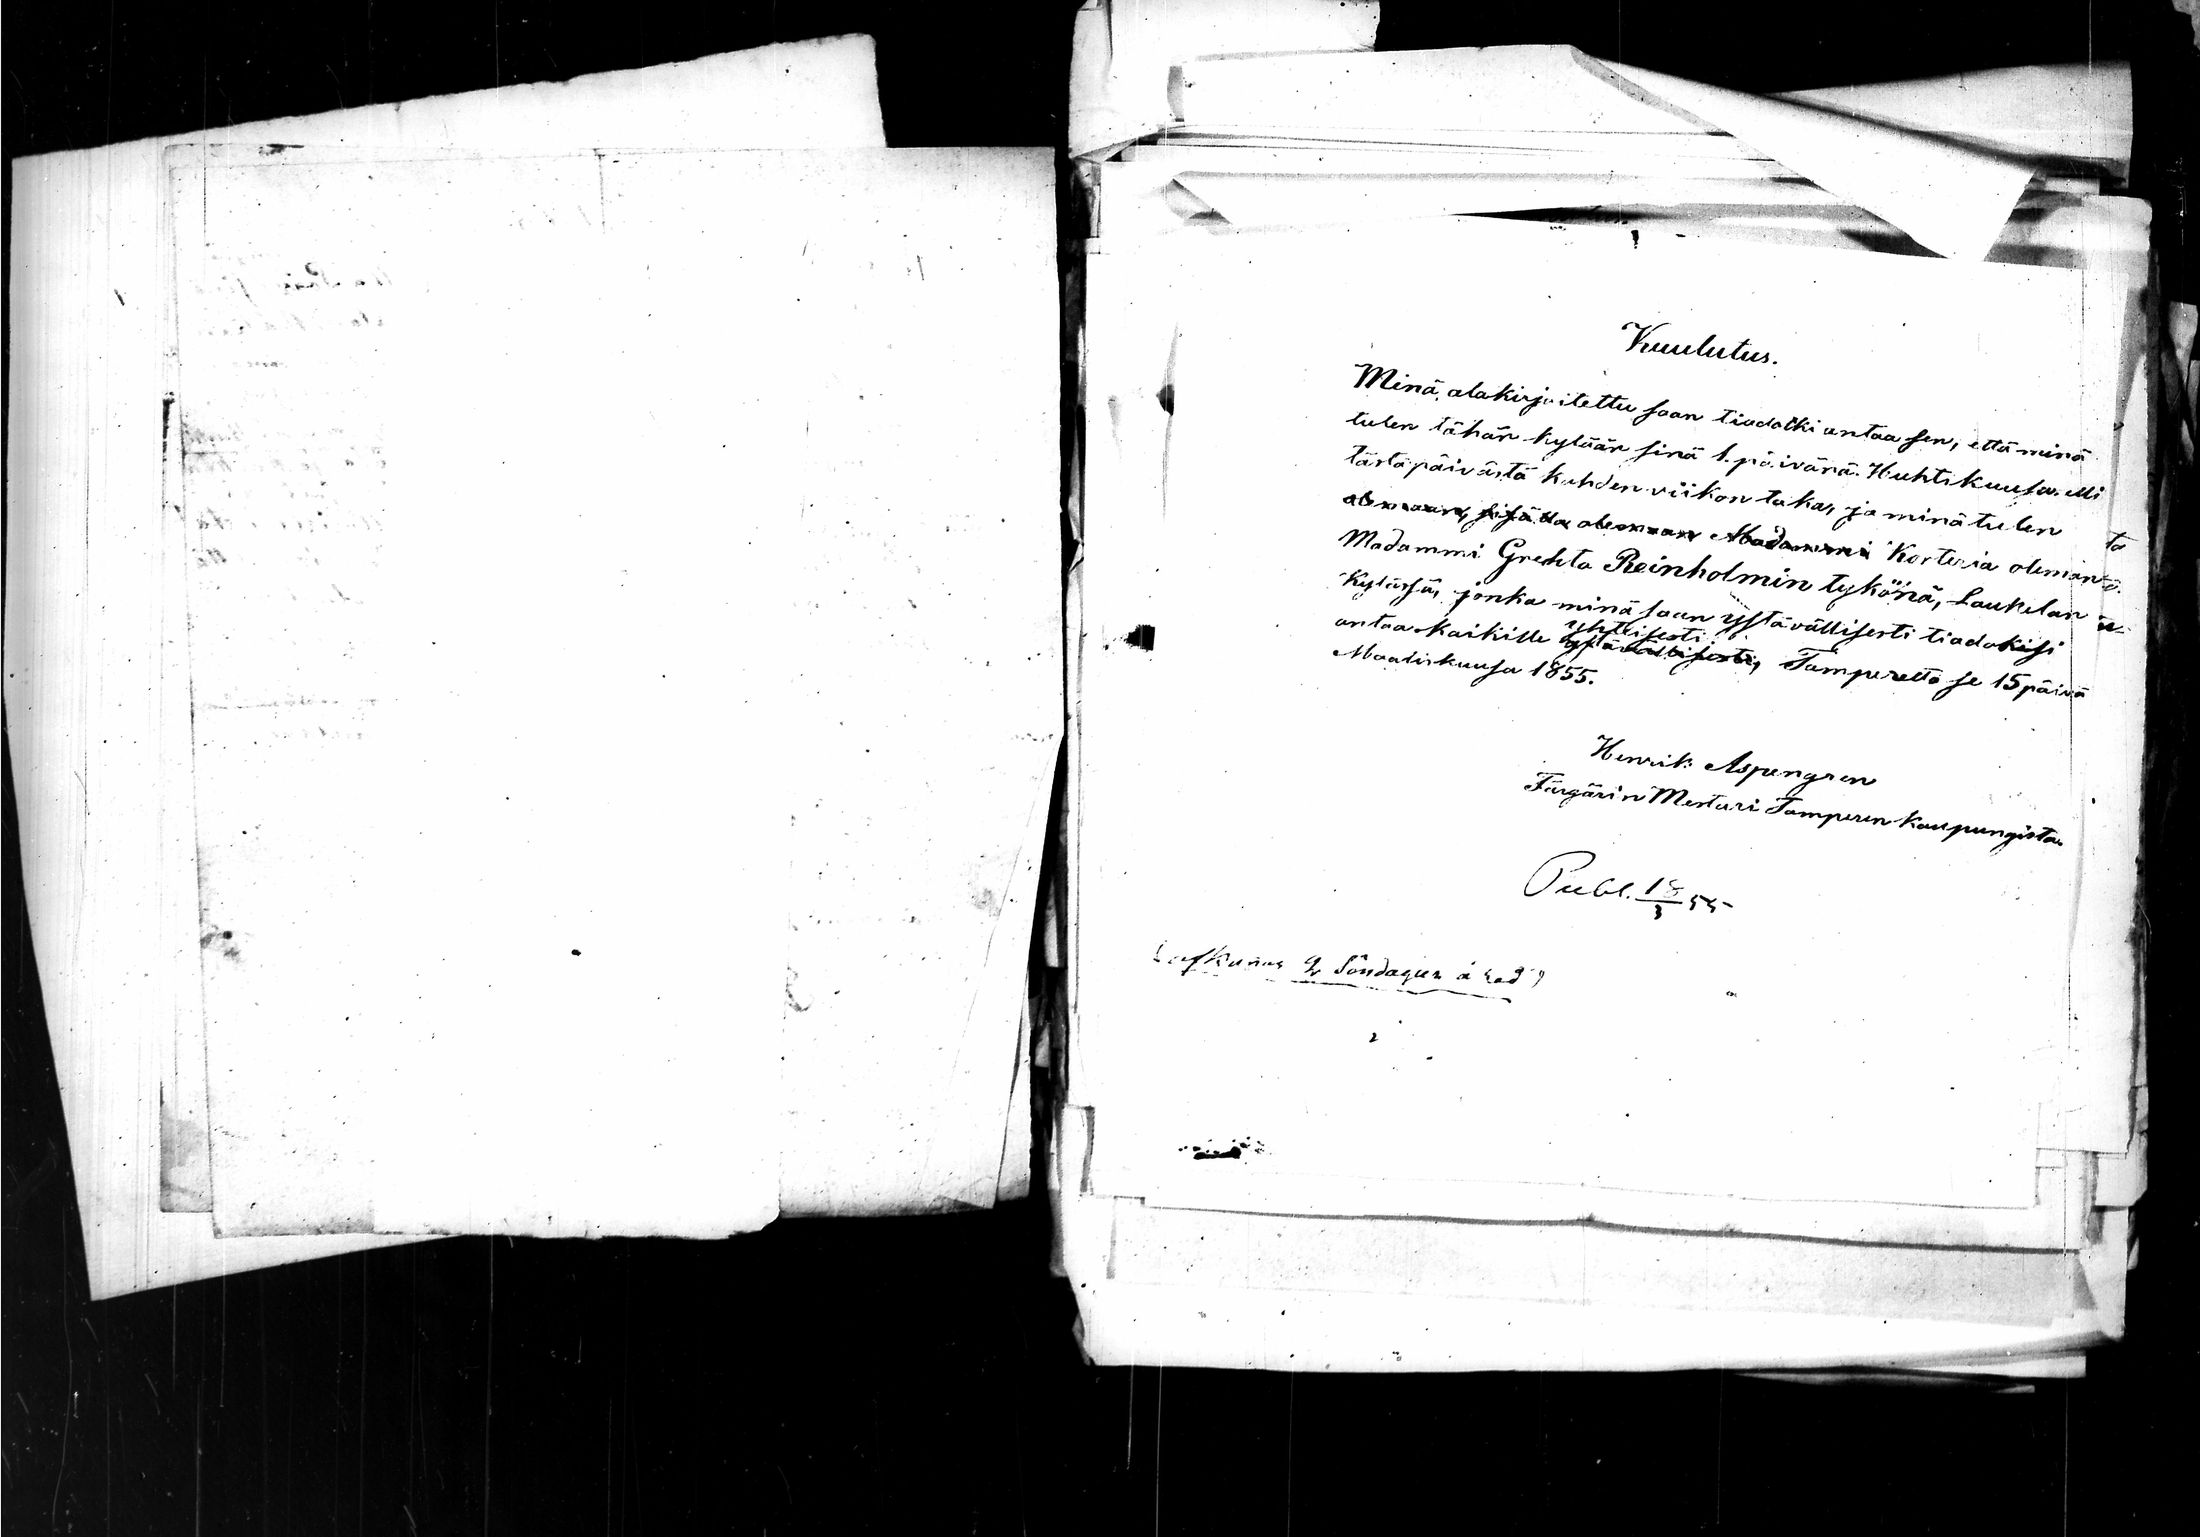 Kuulutus.
Minä, alakirjoitettu saan tiadotki antaa sen, että minä
tulen tähän kylään sinä 1. päivänä Huhtikuusa elli
tästäpäivästä kahden viikon taka, ja minä tulen
olemaan, sisällä olemaan Madammi Korteria oleman
Madammi Grehta Reinholmin tykönä, Laukelan
Kyläsä, jonka minä saan ystävällisesti tiadoksi
yhteisesti
antaa kaikille ystävällisesti, Tamperelta se 15 päivä
Maaliskuusa 1855.
Henrik Aspengren
Färgärin Mestari Tamperen Kaupungista.
Publ. 18/3 55
2 Söndagar å rad